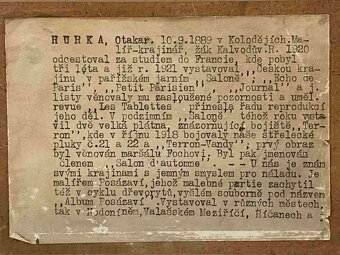 HŮRKA, Otakar. 10.9.1889 v Kolodějích. Ma-
líř-krajinář, žák Kalvodův. R. 1920
odcestoval za studiem do Francie, kde pobyl
tři léta a již r. 1921 vystavoval ,,Českou kraji-
nu v pařížském jarním ,,Saloně"; ,,Echo de
Paris", ,,Petit Parisien" ,,Journal" a j.
listy věnovaly mu zaslouženě pozornosti a uměl.
revue ,,Les Tablettes" přinesla řadu reprodukcí
jeho děl. V podzimním ,,Saloně" téhož roku vysta-
vil dvě velké plátna, znázorňující bojiště, ,,Ter-
ron", kde v říjnu 1918 bojovaly naše střelecké
pluky č.21 a 22 a ,,Terron-Vandy"; prvý obraz
byl věnován maršálu Fochovi. Byl pak jmenován
členem ,,Salon d'automne. - - U nás je znám
svými krajinami s jemným smyslem pro náladu. Je
malířem Posázaví, jehož malebné partie zachytil
též v cyklu dřevorytů, vyšlém souborně pod názvem
,,Album Posázaví. Vystavoval v různých městech,
tak v Hodoníněm, Valašském Meziříčí, Říčanech a